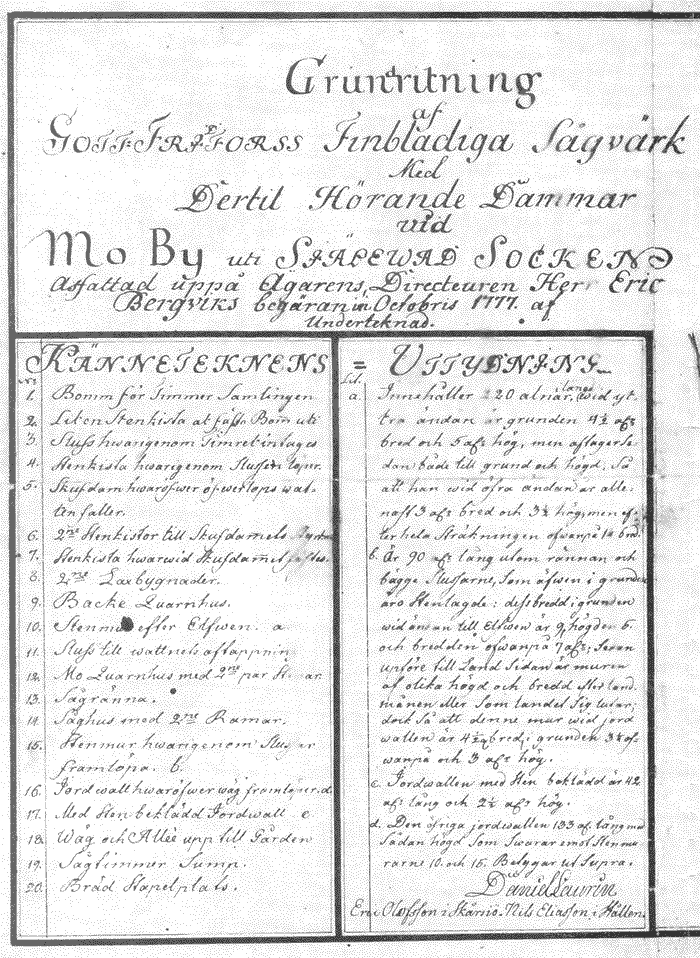 Grundritning
af
GOTTFRIDFORSS Finbladiga Sågvärk
Med
Dertil Hörande Dammar
vid
Mo By uti SKÄPEWAD SOCKEN
Affattad uppå Ägarens, Directeuren Herr Eric
Bergviks begäran in Octobris 1777. af
Underteknad.
KÄNNETEKNENS = UTTYDNING
No
1. Bomm för Timmer Samlingen
2. Liten Stenkista at fästa Bom uti
3. Sluss hwarigenom Timret intages
4. Stenkista hwarigenom Slussen löper.
5. Skufdam hwaröfwer öfwerlops wat-
ten faller.
6. 2ne Stenkistor till Skufdamels
7. Stenkista hwarwid Skufdammel fästes.
8. 2ne Laxbygnader.
9. Backe Quarnhus.
10. Stenmur efter Elfwen. a
11. Sluss till wattnets aftappning
12. Mo Quarnhus med 2ne par Stenar.
13. Sågränna.
14. Såghus med 2ne Ramar.
15. Stenmur hwarigenom Slusser
framlöpa. b.
16. Jordwall hwaröfwer wäg framlöper. d
17. Med Sten beklädd Jordwall c
18. Wäg och Allée upp till Gården
19. Sågtimmer Sump.
20. Bräd Stapelplats.
Lit.
a. Innehåller 220 alnar, långd, wid yt-
tra ändan är grunden 4½ als
bred och 5 als hög, men aftager se-
dan både till grund och högd, Så
att han wid öfra ändan är alle-
nast 3 als bred och 3½ hög, men ef-
ter hela Sträkningen ofwanpå 1½ bred.
b. Är 90 als lång utom rännan och
bägge Slussarne, Som äfwen i grunden
äro Stenlagde: dess bredd i grunden
wid ändan till Elfwen är 9, högden 6.
och bredden ofwanpå 7 als; Sedan
upföre till Land Sidan är muren
af olika högd och bredd efter land-
månen eller Som landet Sig lutar;
dock Så att denne mur wid jord
wallen är 4½ aln bred i grunden 3½ of-
wanpå och 3 als hög.
c. Jordwallen med Sten beklädd är 42
als lång och 2½ als hög.
d. Den öfriga jordwallen 133 al. lång med
Sådan högd Som Swarar emot Stenmu
rarne 10. och 15. Betygar ut Supra.
Daniel Laurin
Eric Olofsson i Skärnö. Nils Eliasson i Hållen.